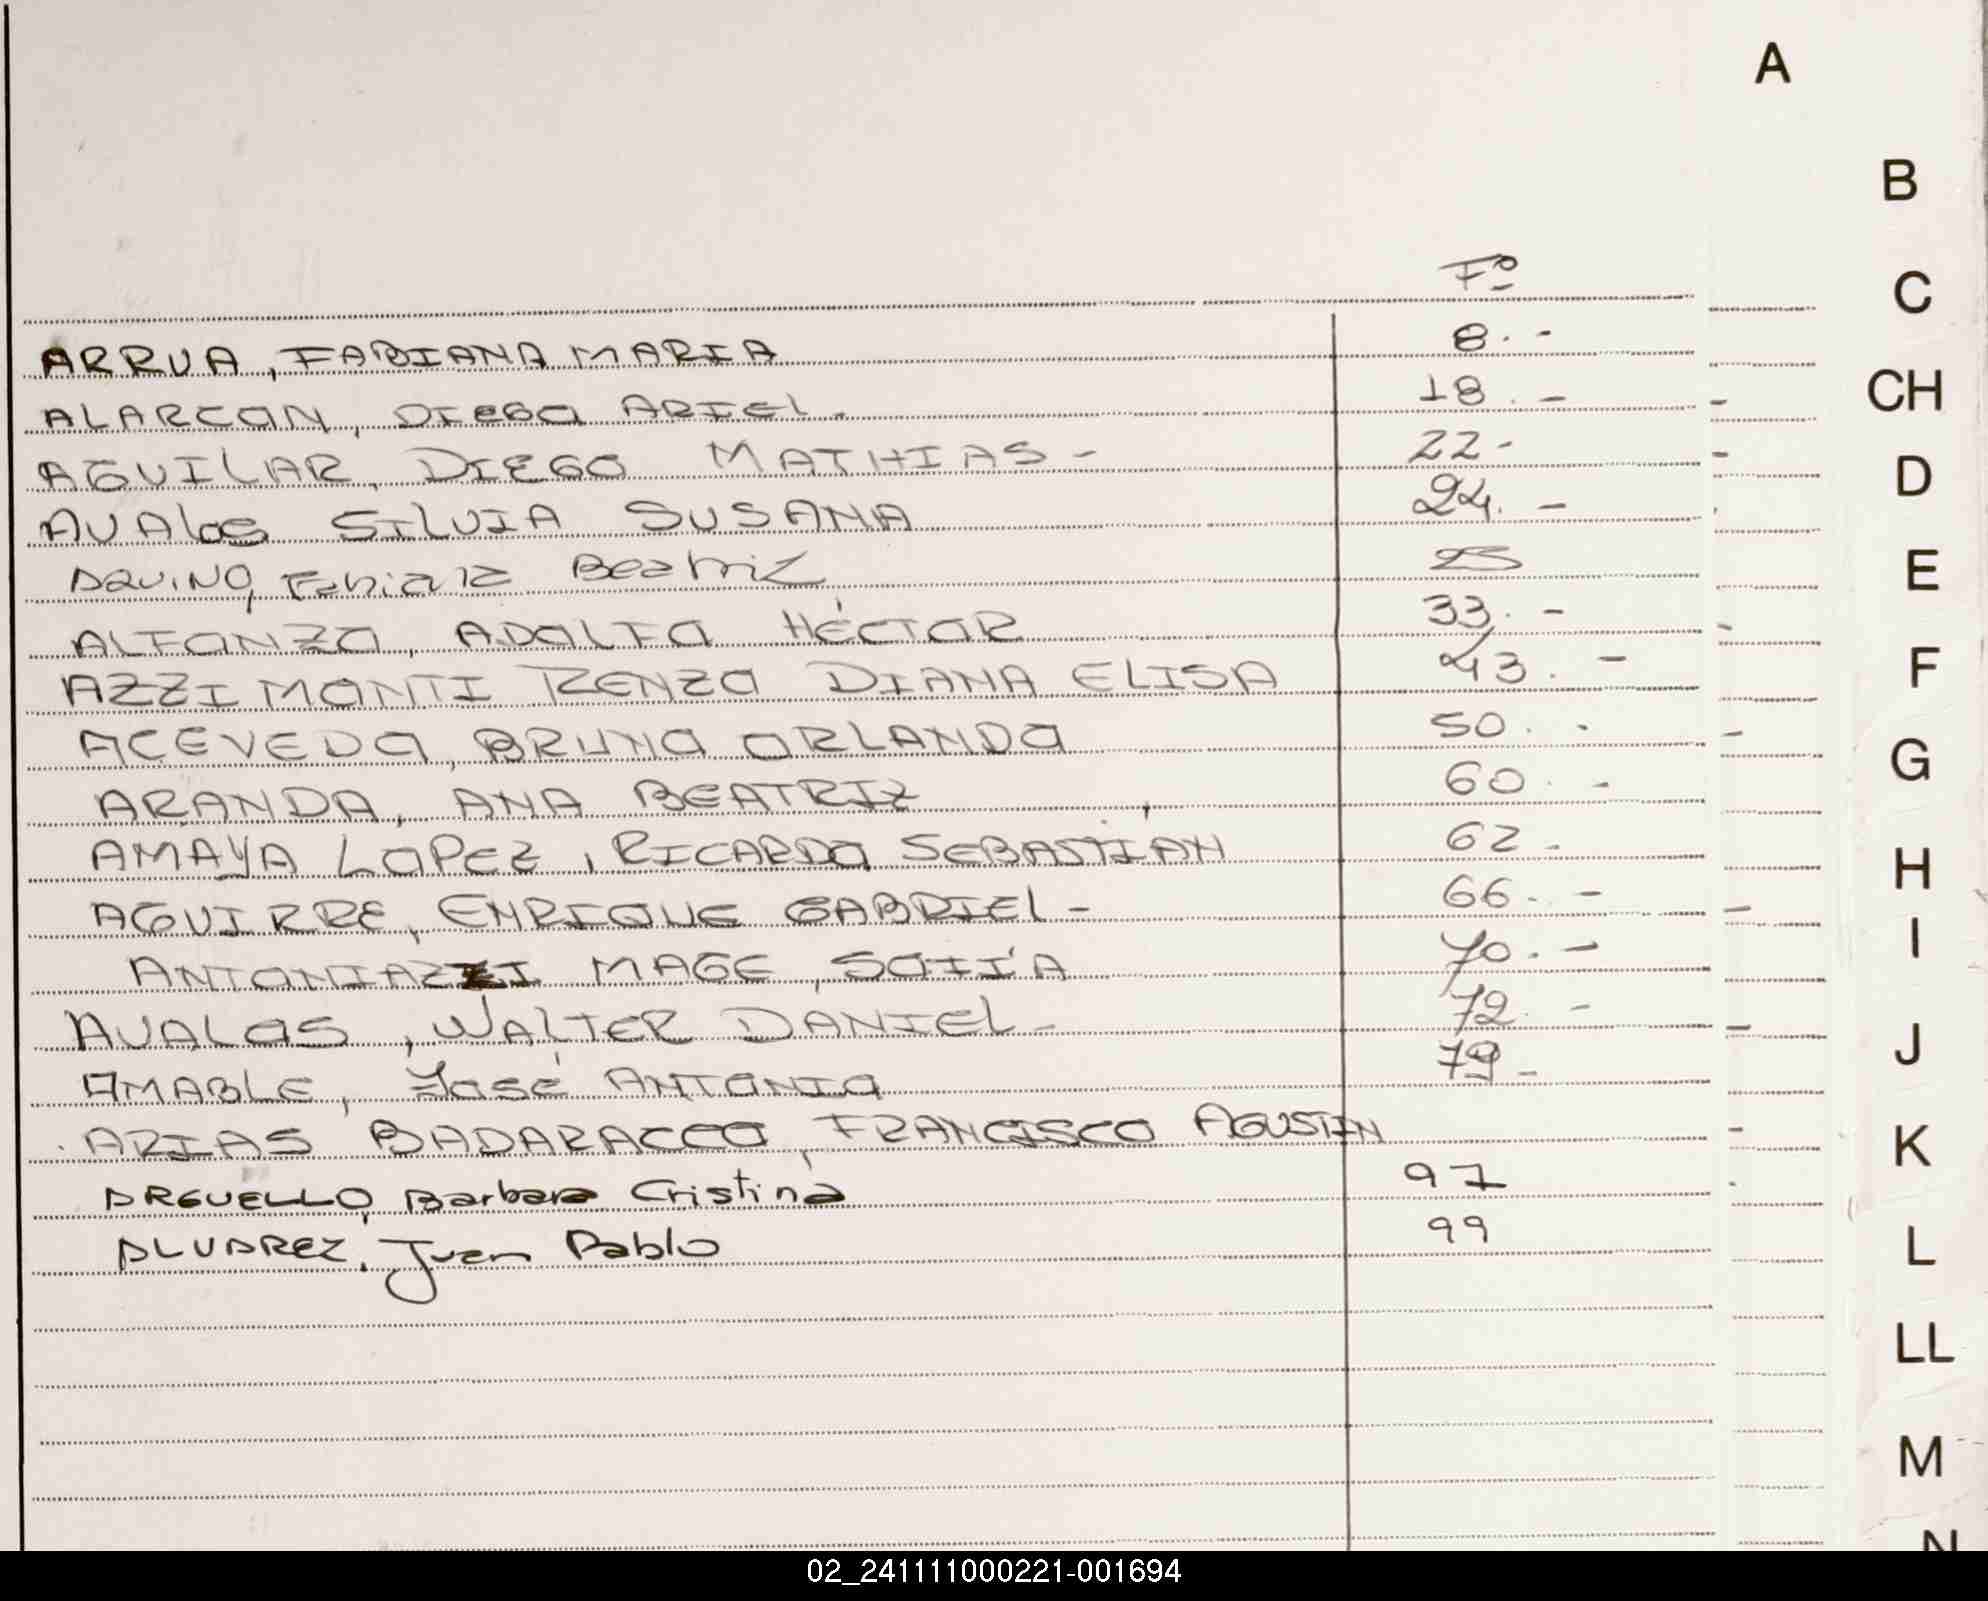 A
B
F°
C
ARRUA, FABIANA MARIA 8.-
ALARCON, DIEGO ARIEL. 18.-
CH
AGUILAR, DIEGO MATHIAS- 22-
D
AVAlos SILVIA SUSANA 24.-
AQUINO, Fabiana Beatriz 25
E
ALFONZO, ADOLFO HÉCTOR 33.-
AZZIMONTI RENZO DIANA ELISA 43.-
F
ACEVEDO, BRUNO ORLANDO 50.-
G
ARANDA, ANA BEATRIZ 60.-
AMAYA LOPEZ, RICARDO SEBASTIÁN 62.-
H
AGUIRRE, ENRIQUE GABRIEL- 66.-
I
ANTONIAZZI MAGE, SOFÍA 70.-
AVALOS, WALTER DANIEL- 72.-
J
AMABLE, José ANTONIO 79-
ARIAS BADARACCO, FRANCISCO AGUSTIN
K
ARGUELLO, Barbara Cristina 97
ALVAREZ, Juan Pablo 99
L
LL
M
N
02_241111000221-001694